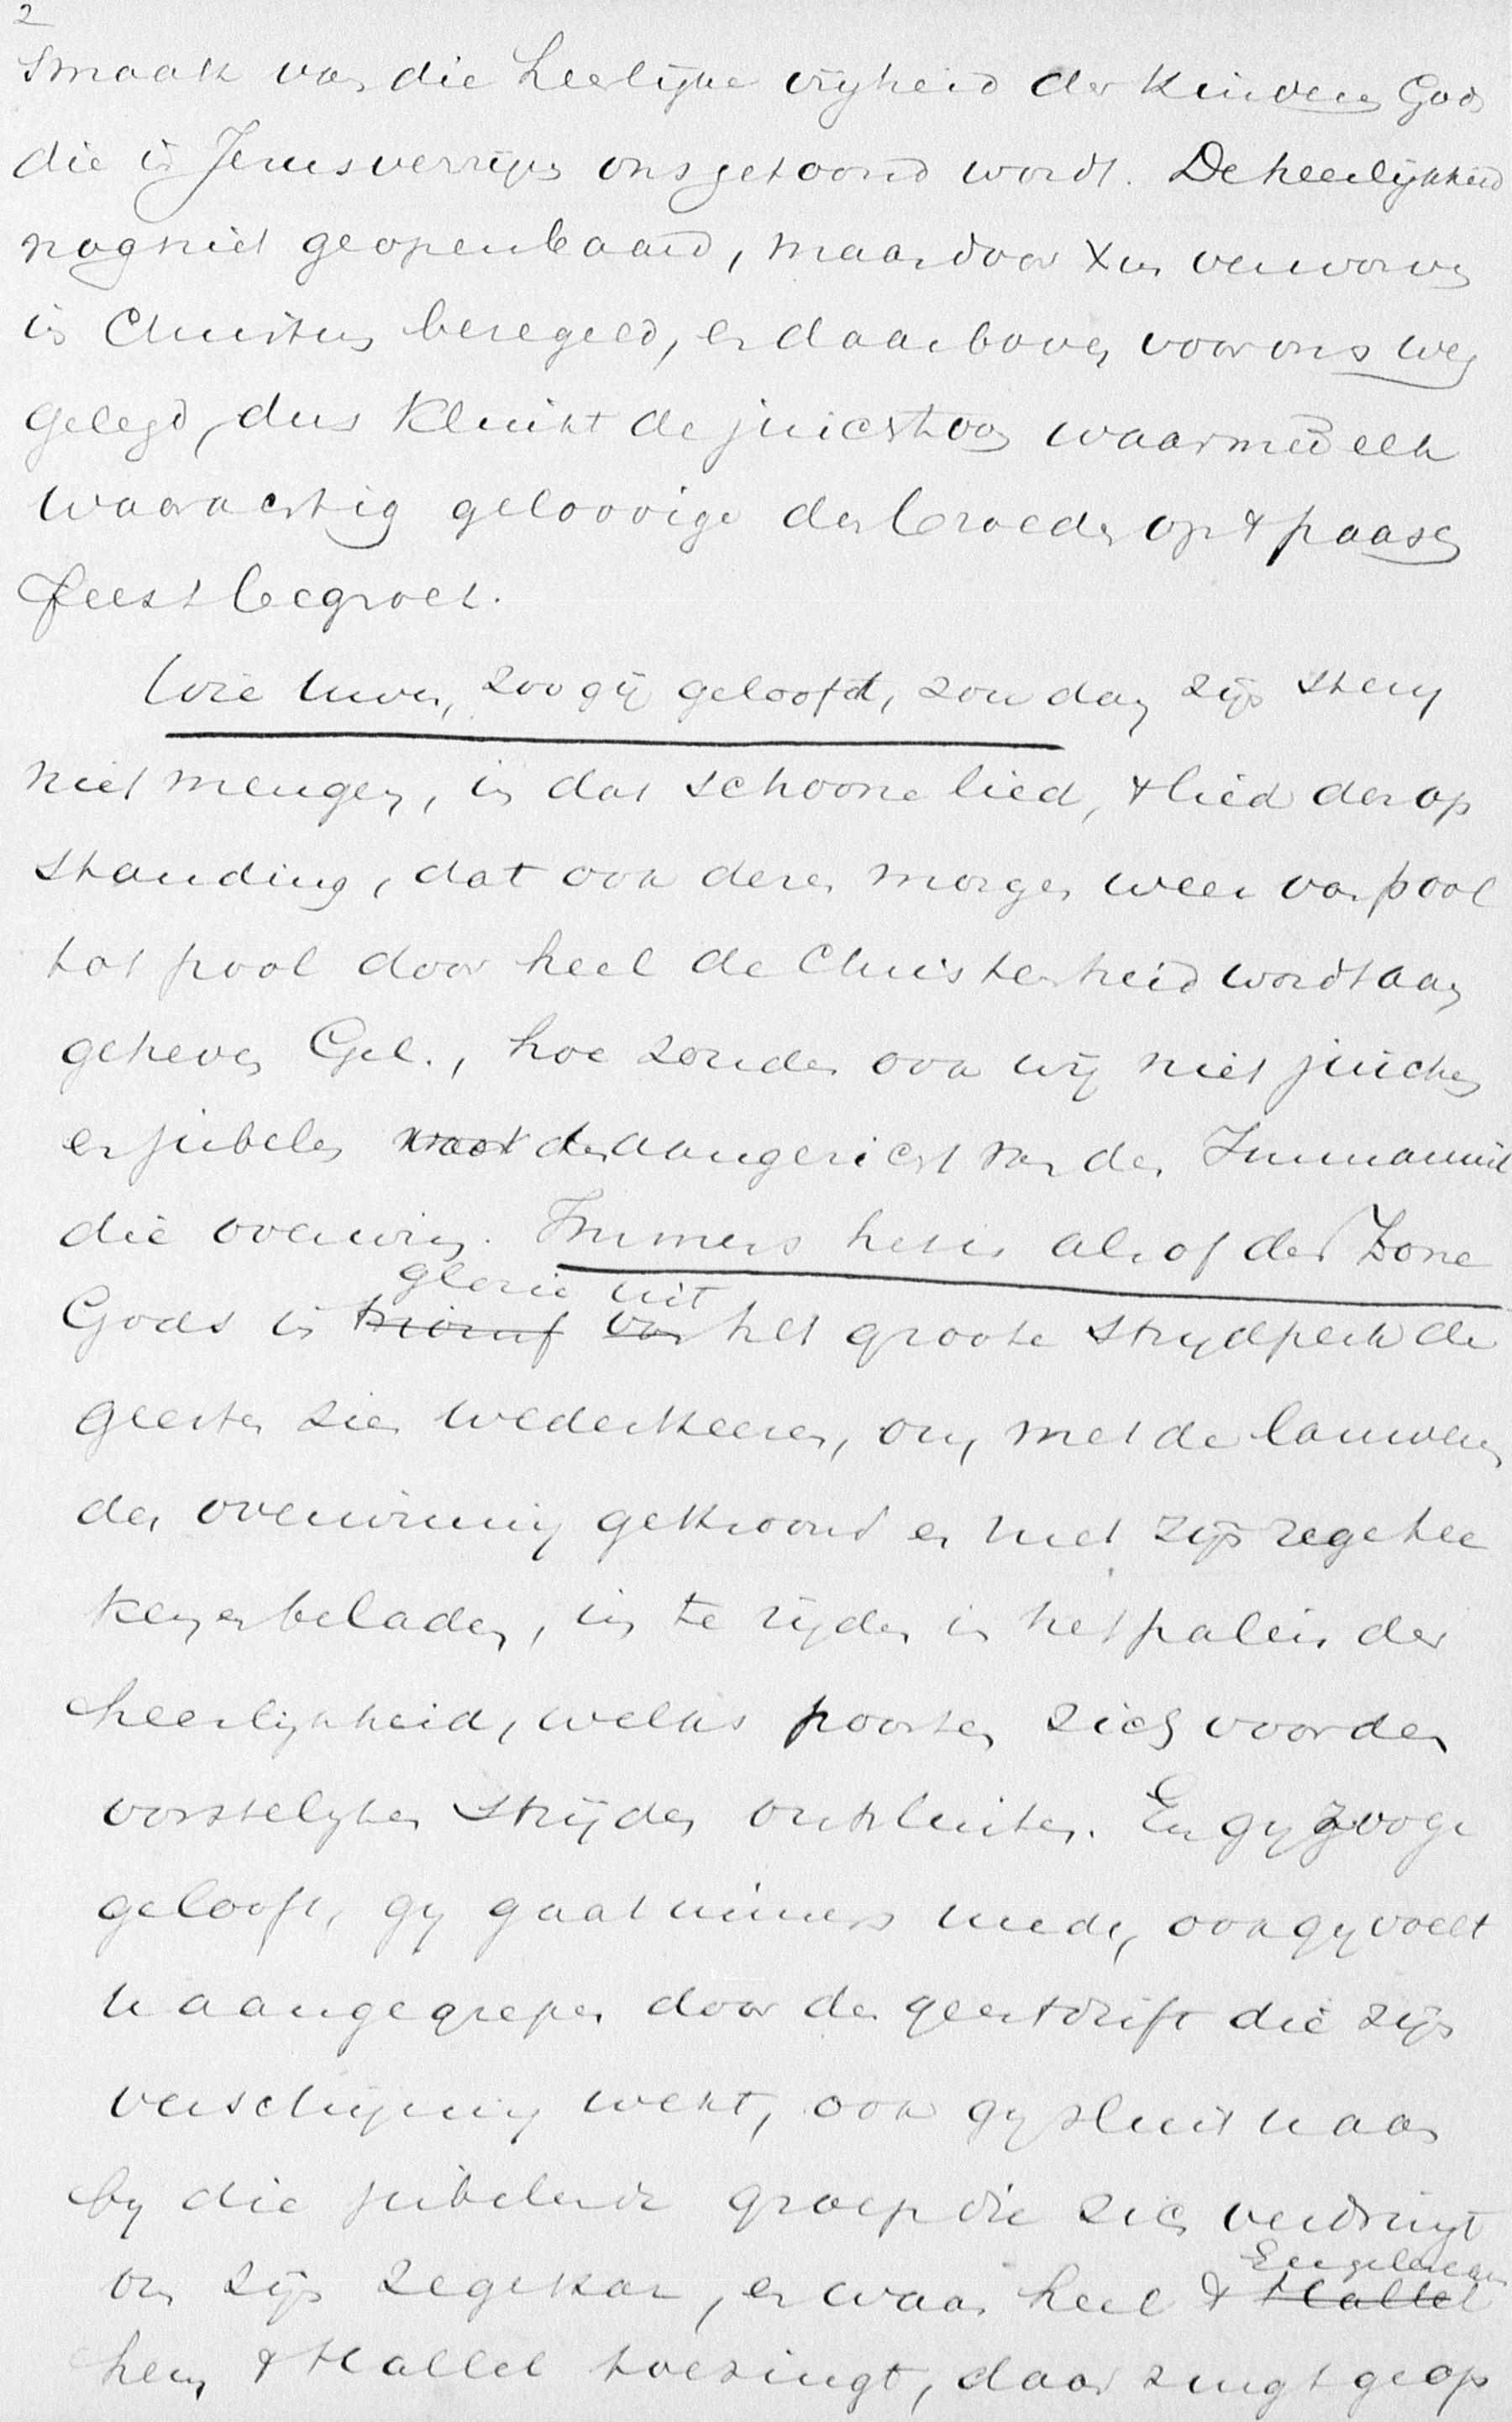 2
smaak van die heerlijke vrijheid der kinderen Gods
die in Jezus verrijzen ons getoond wordt. De heerlijkheid
nog niet geopenbaard, maar door Xus verworven
in Christus bezegeld, en daarboven voor ons weg
gelegd, dus klinkt de juichtoon waarmeê elk
waarachtig geloovige den broeder op 't paasch
feest begroet.
Wie uwer, zoo gij gelooft, zou dan zijn stem
niet mengen, in dat schoone lied, 't lied der op
standing, dat ook dezen morgen weer van pool
tot pool door heel de Christenheid wordt aan
geheven Gel., hoe zouden ook wij niet juichen
en jubelen den aangezicht van den Immanuël
die overwin. Immers het is alsof der Zone
glorie uit
Gods in triomf van het groote strydperk der
geesten zien wederkeeren, om, met de lauweren
der overwinning gekroond en met zijn zegetee
kenen beladen, in te rijden in het paleis der
heerlijkheid, welks poorten zich voor den
vorstelyken strijder ontsluiten. En gy zoo ge
gelooft, gy gaat immers mede, ook gy voelt
u aangegrepen door de geestdrift die zijn
verschyning wekt, ook gy sluit u aan
by die jubelende groep die zich verdringt
om zijn zegekar, en waar heel 't Hallel
Engelenheir
hem 't Hallel toezingt, daar zingt ge op